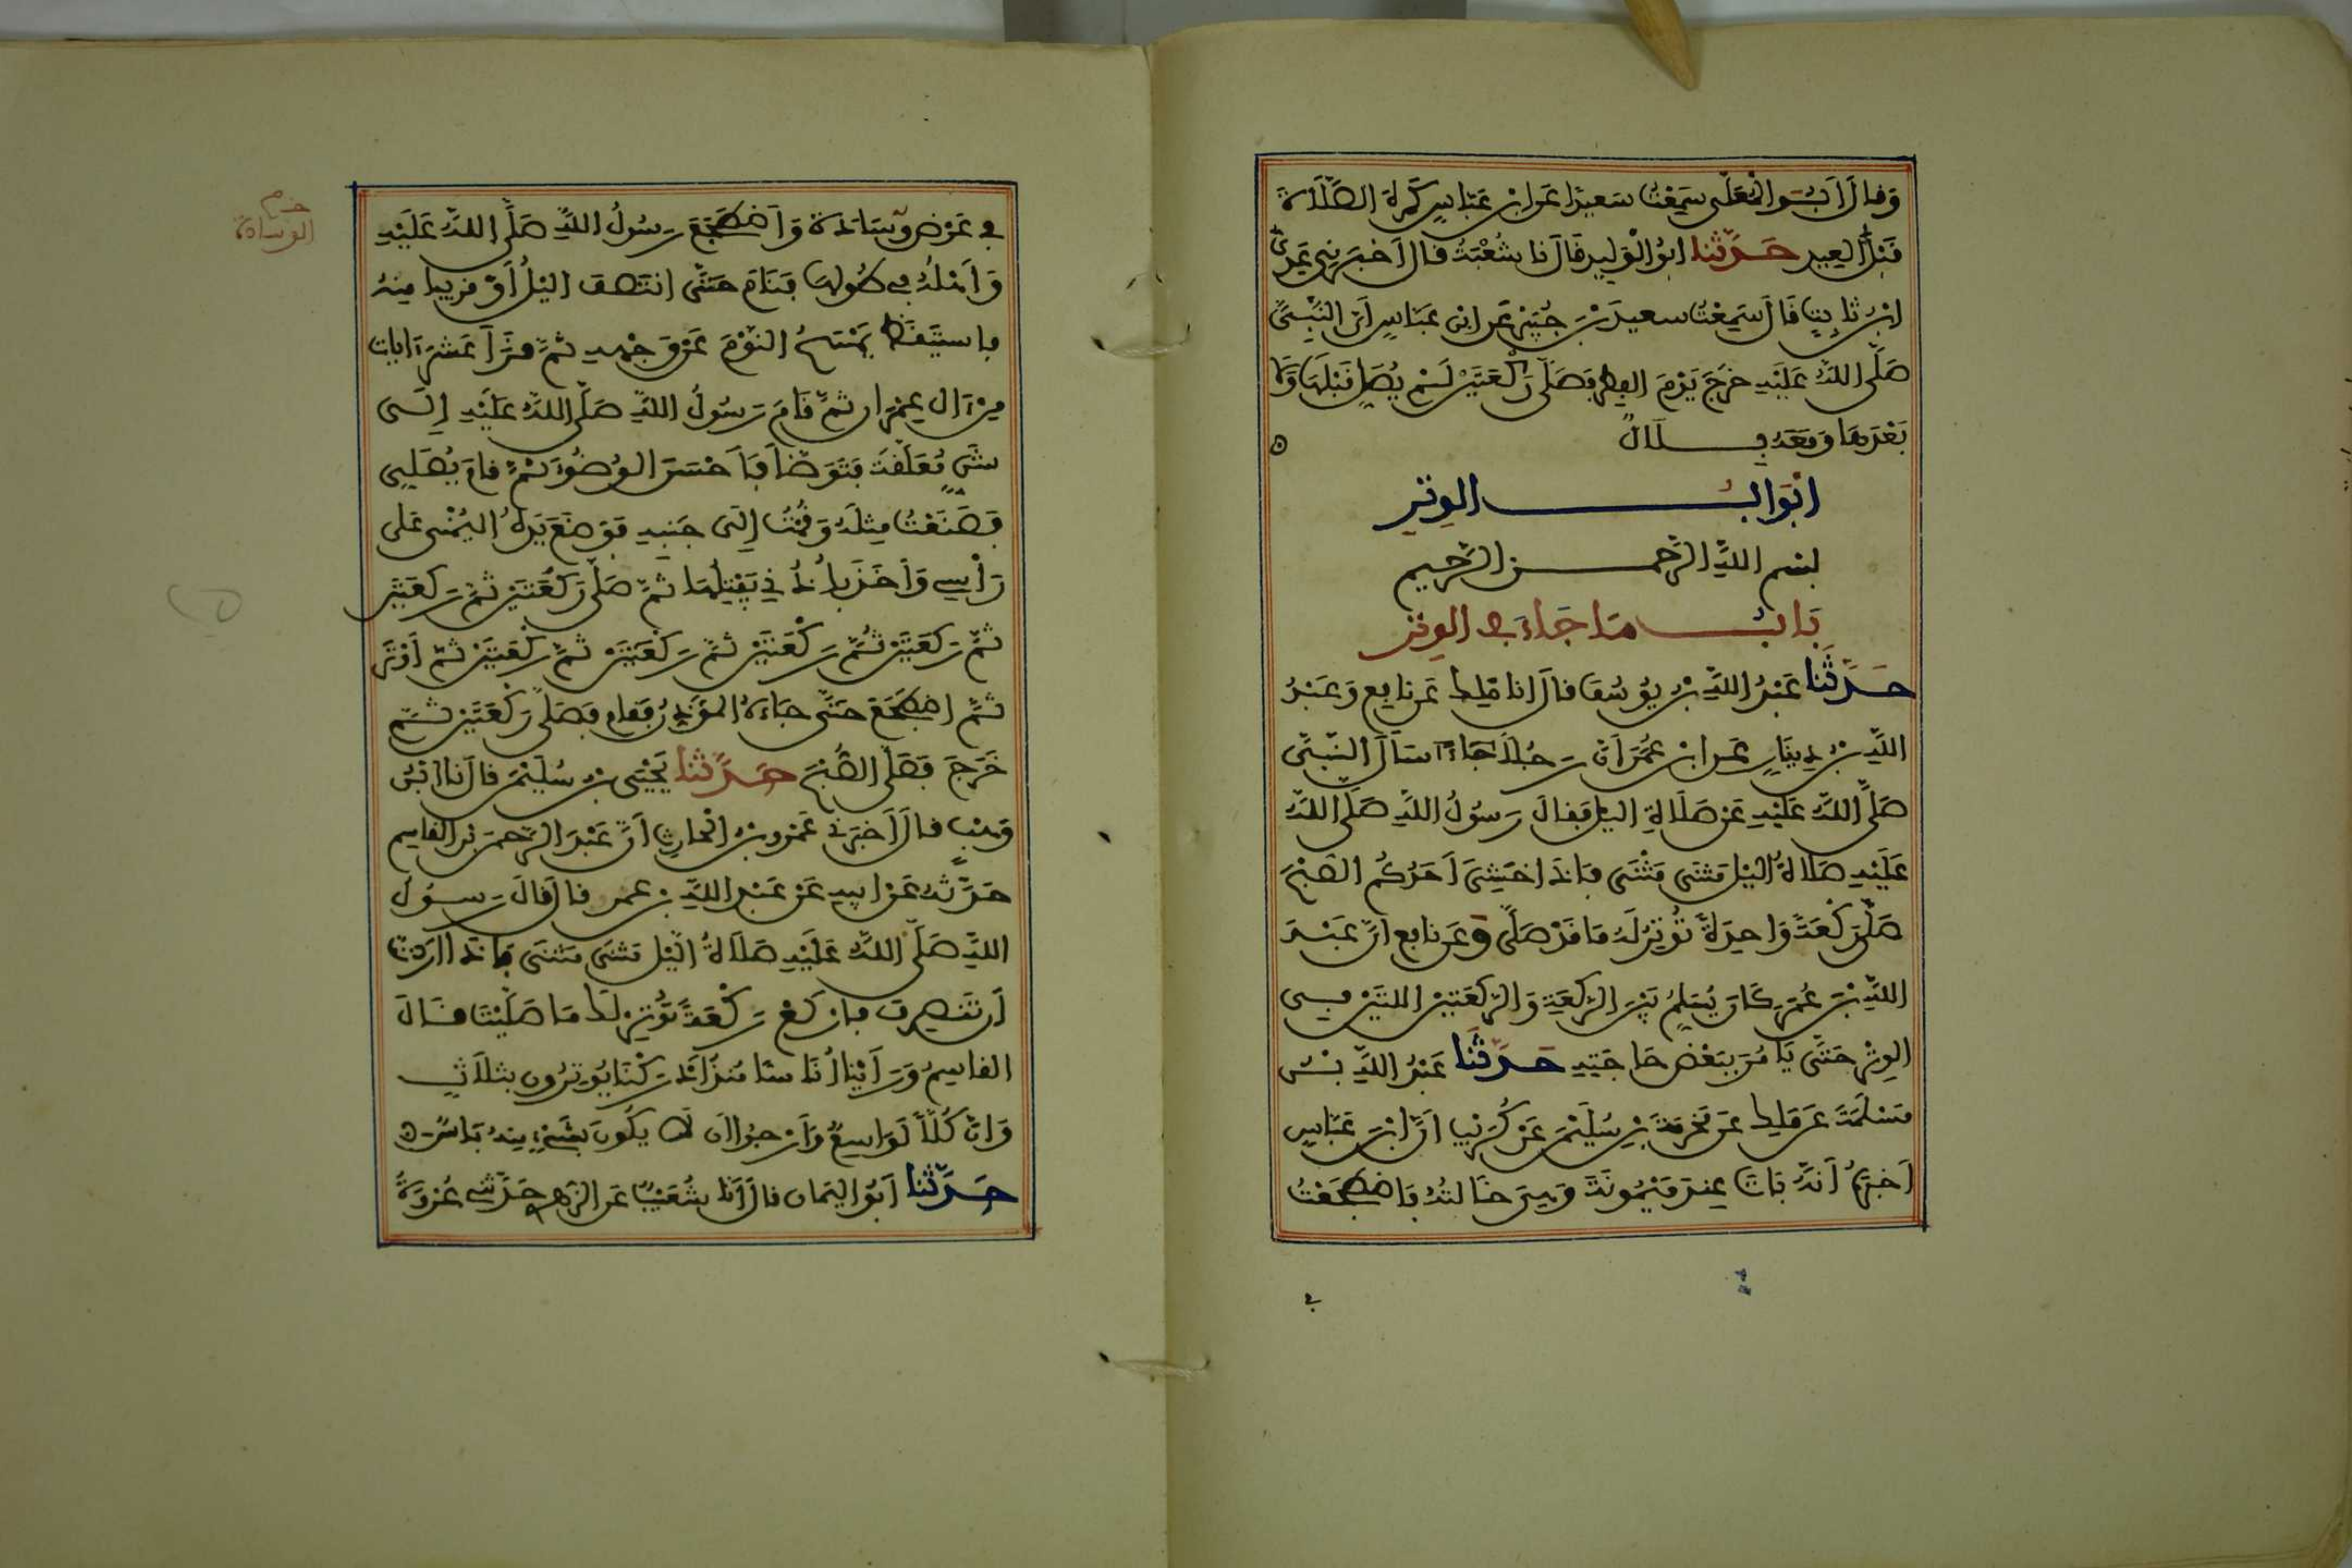 وَقَالَ أَبُو الْمُعَلَّى سَمِعْتُ سَعِيدًا عَنِ ابْنِ عَبَّاسٍ كَرِهَ الصَّلَاةَ
قَبْلَ الْعِيدِ حَدَّثَنَا أَبُو الْوَلِيدِ قَالَ نا شُعْبَةُ قَالَ أَخْبَرَنِي عَدِيُّ
ابْنُ ثَابِتٍ قَالَ سَمِعْتُ سَعِيدَ بْنَ جُبَيْرٍ عَنِ ابْنِ عَبَّاسٍ أَنَّ النَّبِيَّ
صَلَّى اللَّهُ عَلَيْهِ خَرَجَ يَوْمَ الْفِطْرِ فَصَلَّى رَكْعَتَيْنِ لَمْ يُصَلِّ قَبْلَهَا وَلَا
بَعْدَهَا وَمَعَهُ بِلَالٌ ه
أَبْوَابُ الْوِتْرِ
بِسْمِ اللَّهِ الرَّحْمَنِ الرَّحِيمِ
بَابُ مَا جَاءَ فِي الْوِتْرِ
حَدَّثَنَا عَبْدُ اللَّهِ بْنُ يُوسُفَ قَالَ أنا مَلِك عَنْ نَافِعٍ وَعَبْدُ
اللَّهِ بْنُ دِينَارٍ عَنِ ابْنِ عُمَرَ أَنَّ رَجُلًا جَاءَ سَأَلَ النَّبِيَّ
صَلَّى اللَّهُ عَلَيْهِ عَنْ صَلَاةِ اليْلِ فَقَالَ رَسُولُ اللَّهِ صَلَّى اللَّهُ
عَلَيْهِ صَلَاةُ اليْلِ مَثْنَى مَثْنَى فَإِذَا خَشِيَ أَحَدُكُمُ الصُّبْحَ
صَلَّى رَكْعَةً وَاحِدَةً تُوتِرُ لَهُ مَا قَدْ صَلَّى وَعَنْ نَافِعٍ أَنَّ عَبْدَ
اللَّهِ بْنَ عُمَرَ كَانَ يُسَلِّمُ بَيْنَ الرَّكْعَةِ وَالرَّكْعَتَيْنِ اللتَيْنِ فِي
الْوِتْرِ حَتَّى يَأْمُرَ بِبَعْضِ حَاجَتِهِ حَدَّثَنَا عَبْدُ اللَّهِ بْنُ
مَسْلَمَةَ عَنْ مَلِك عَنْ مَخْرَمَةَ بْنِ سُلَيْمَنَ عَنْ كُرَيْبٍ أَنَّ ابْنَ عَبَّاسٍ
أَخْبَرَهُ أَنَّهُ بَاتَ عِنْدَ مَيْمُونَةَ وَهِيَ خَالَتُهُ فَاضْطَجَعْتُ
في
فِي عَرْضِ وِسَادَةٍ وَاضْطَجَعَ رَسُولُ اللَّهِ صَلَّى اللَّهُ عَلَيْهِ
الوسادة
وَأَهْلُهُ فِي طُولِهَا فَنَامَ حَتَّى انْتَصَفَ اليْلُ أَوْ قَرِيبا مِنْهُ
فَاسْتَيْقَظَ يَمْسَحُ النَّوْمَ عَنْ وَجْهِهِ ثُمَّ قَرَأَ عَشْرَ آيَاتٍ
مِنْ آلِ عِمْرَانَ ثُمَّ قَامَ رَسُولُ اللَّهِ صَلَّى اللَّهُ عَلَيْهِ إِلَى
شَنٍّ مُعَلَّقَةٍ فَتَوَضَّأَ فَأَحْسَنَ الْوُضُوءَ ثُمَّ قَامَ يُصَلِّي
فَصَنَعْتُ مِثْلَهُ وَقُمْتُ إِلَى جَنْبِهِ فَوَضَعَ يَدَهُ الْيُمْنَى عَلَى
رَأْسِي وَأَخَذَ بِأُذُنِي يَفْتِلُهَا ثُمَّ صَلَّى رَكْعَتَيْنِ ثُمَّ رَكْعَتَيْنِ
ثُمَّ رَكْعَتَيْنِ ثُمَّ رَكْعَتَيْنِ ثُمَّ رَكْعَتَيْنِ ثُمَّ رَكْعَتَيْنِ ثُمَّ أَوْتَرَ
ثُمَّ اضْطَجَعَ حَتَّى جَاءَهُ الْمُؤَذِّنُ فَقَامَ فَصَلَّى رَكْعَتَيْنِ ثُمَّ
خَرَجَ فَصَلَّى الصُّبْحَ حَدَّثَنَا يَحْيَى بْنُ سُلَيْمَنَ قَالَ نا ابْنُ
وَهْبٍ قَالَ أَخْبَرَنِي عَمْرُو بْنُ الْحَارِثِ أَنَّ عَبْدَ الرَّحْمَنِ بْنَ الْقَاسِمِ
حَدَّثَهُ عَنْ أَبِيهِ عَنْ عَبْدِ اللَّهِ بْنِ عُمَرَ قَالَ قَالَ رَسُولُ
اللَّهِ صَلَّى اللَّهُ عَلَيْهِ صَلَاةُ اليْلِ مَثْنَى مَثْنَى فَإِذَا أَرَدتَّ
أَنْ تَنْصَرِفَ فَارْكَعْ رَكْعَةً تُوتِرُ لَكَ مَا صَلَّيْتَ قَالَ
الْقَاسِمُ وَرَأَيْنَا أُنَاسًا مُنْذُ أَدْرَكْنَا يُوتِرُونَ بِثَلَاثٍ
وَإِنَّ كُلًّا لَوَاسِعٌ وَأَرْجُوا أَن لَا يَكُونَ بِشَيْءٍ مِنْهُ بَأْسٌ ه
حَدَّثَنَا أَبُو الْيَمَانِ قَالَ أَنَا شُعَيْبٌ عَنِ الزُّهْرِي حَدَّثَنِي عُرْوَةُ